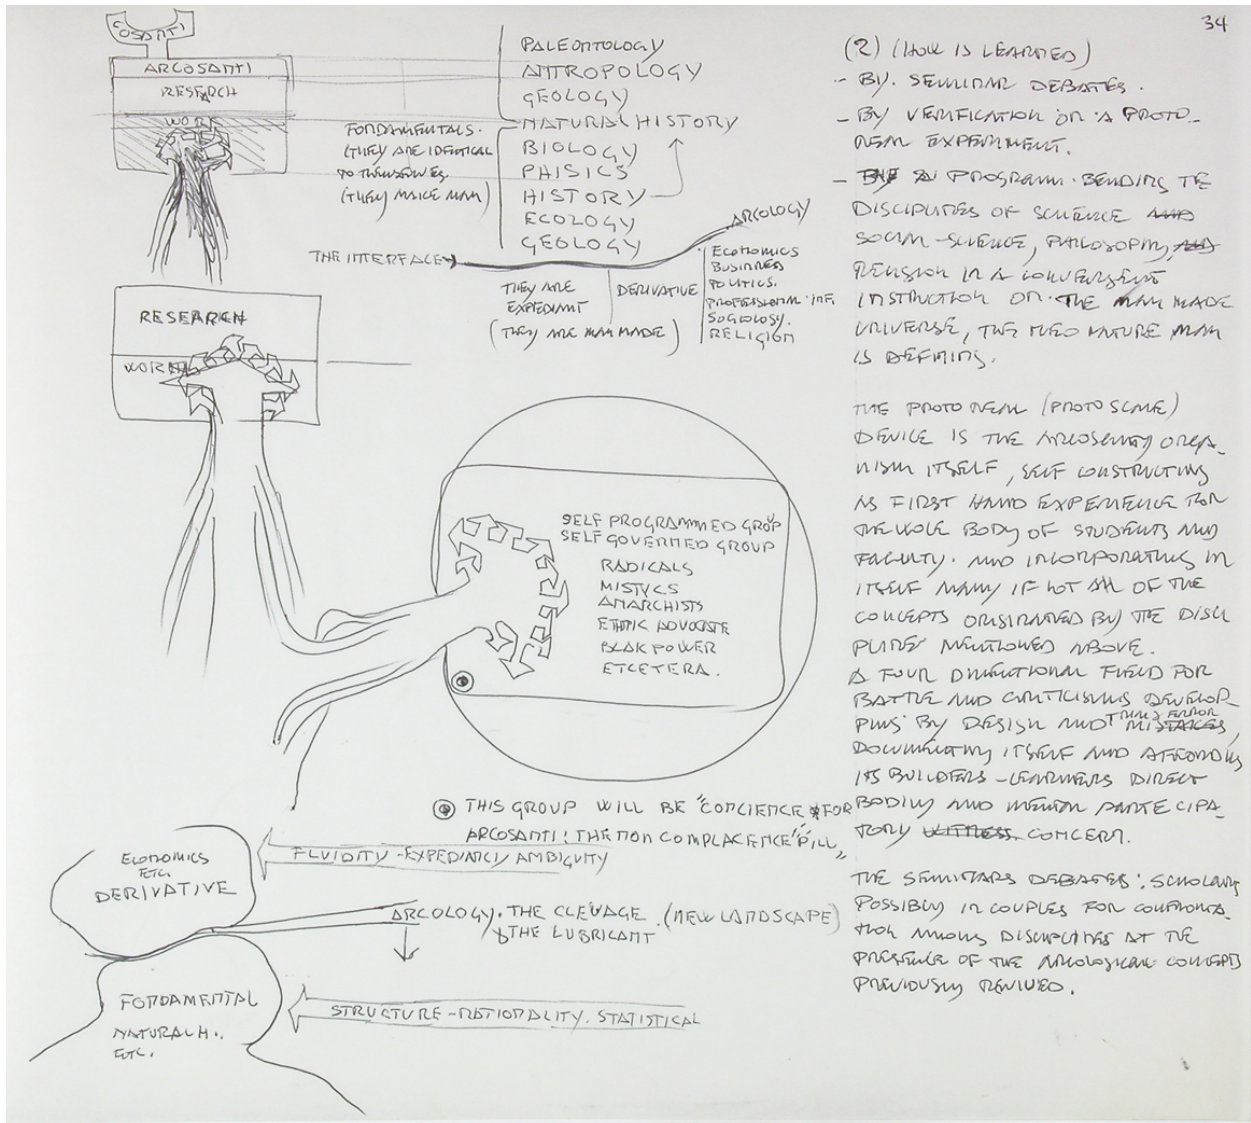 34
COSANTI
ARCOSANTI
RESEARCH
WORK
FONDAMENTALS.
(THEY ARE IDENTICAL
TO THEMSELVES.
(THEY MAKE MAN)
PALEONTOLOGY
ANTROPOLOGY
GEOLOGY
NATURAL HISTORY
BIOLOGY
PHISICS
HISTORY
ECOLOGY
GEOLOGY
THE INTERFACE
ARCOLOGY
THEY ARE
EXPEDIANT
DERIVATIVE
(THEY ARE MAN MADE)
ECONOMICS
BUSINNES
POLITICS.
PROFESSIONAL INF.
SOCIOLOGY.
RELIGION
RESEARCH
WORK
SELF PROGRAMMED GROP
SELF GOVERNED GROUP
RADICALS
MISTYCS
ANARCHISTS
ETHNIC ADVOCATE
BLAK POWER
ETCETERA.
THIS GROUP WILL BE "CONCIENCE FOR
ARCOSANTI! THE NON COMPLACENCE "PILL"
ECONOMICS
ETC.
DERIVATIVE
FLUIDITY - EXPEDIANCY AMBIGUITY
ARCOLOGY. THE CLEVAGE (NEW LANDSCAPE)
& THE LUBRICANT
FONDAMENTAL
NATURAL H..
ETC.
STRUCTURE - RATIONALITY. STATISTICAL
(2) (HOW IS LEARNED)
- BY. SEMINAR DEBATES.
- BY VERIFICATION ON A PROTO_
REAL EXPERIMENT.
- BY A PROGRAM. BENDING TE
DISCIPLINES OF SCIENCE AND
SOCIAL-SCIENCE, PHILOSOPHY, AND
RELIGION IN A CONVERGENT
INSTRUCTION ON. THE MAN MADE
UNIVERSE, THE NEO NATURE MAN
IS DEFINING.
THE PROTO REAL (PROTO SCALE)
DEVICE IS THE ARCOSANTI ORGA_
NISM ITSELF, SELF CONSTRUCTING
AS FIRST HAND EXPERIENCE FOR
THE WOLE BODY OF STUDENTS AND
FACULTY. AND INCORPORATING IN
ITSELF MANY IF NOT ALL OF THE
CONCEPTS ORIGINATED BY THE DISCI
PLINES MENTIONED ABOVE.
A FOUR DIMENTIONAL FIELD FOR
BATTLE AND CRITICISMS DEVELOP_
PING BY DESIGN AND TRIAL & ERROR MISTAKES,
DOCUMENTING ITSELF AND AFFORDING
ITS BUILDERS-LEARNERS DIRECT
BODILY AND MENTAL PARTECIPA_
TORY WITNESS CONCERN.
THE SEMINARS DEBATES: SCHOLARS
POSSIBLY IN COUPLES FOR CONFRONTA_
TION AMONG DISCIPLINES AT THE
PRESENCE OF THE ARCOLOGICAL CONCEPTS
PREVIOUSLY REVIUED.